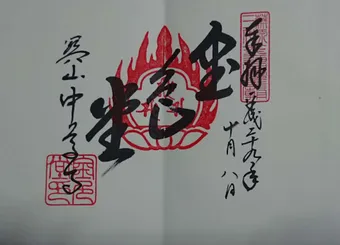 奉拝
平成二十九年
十月八日
金色堂
関山中尊寺